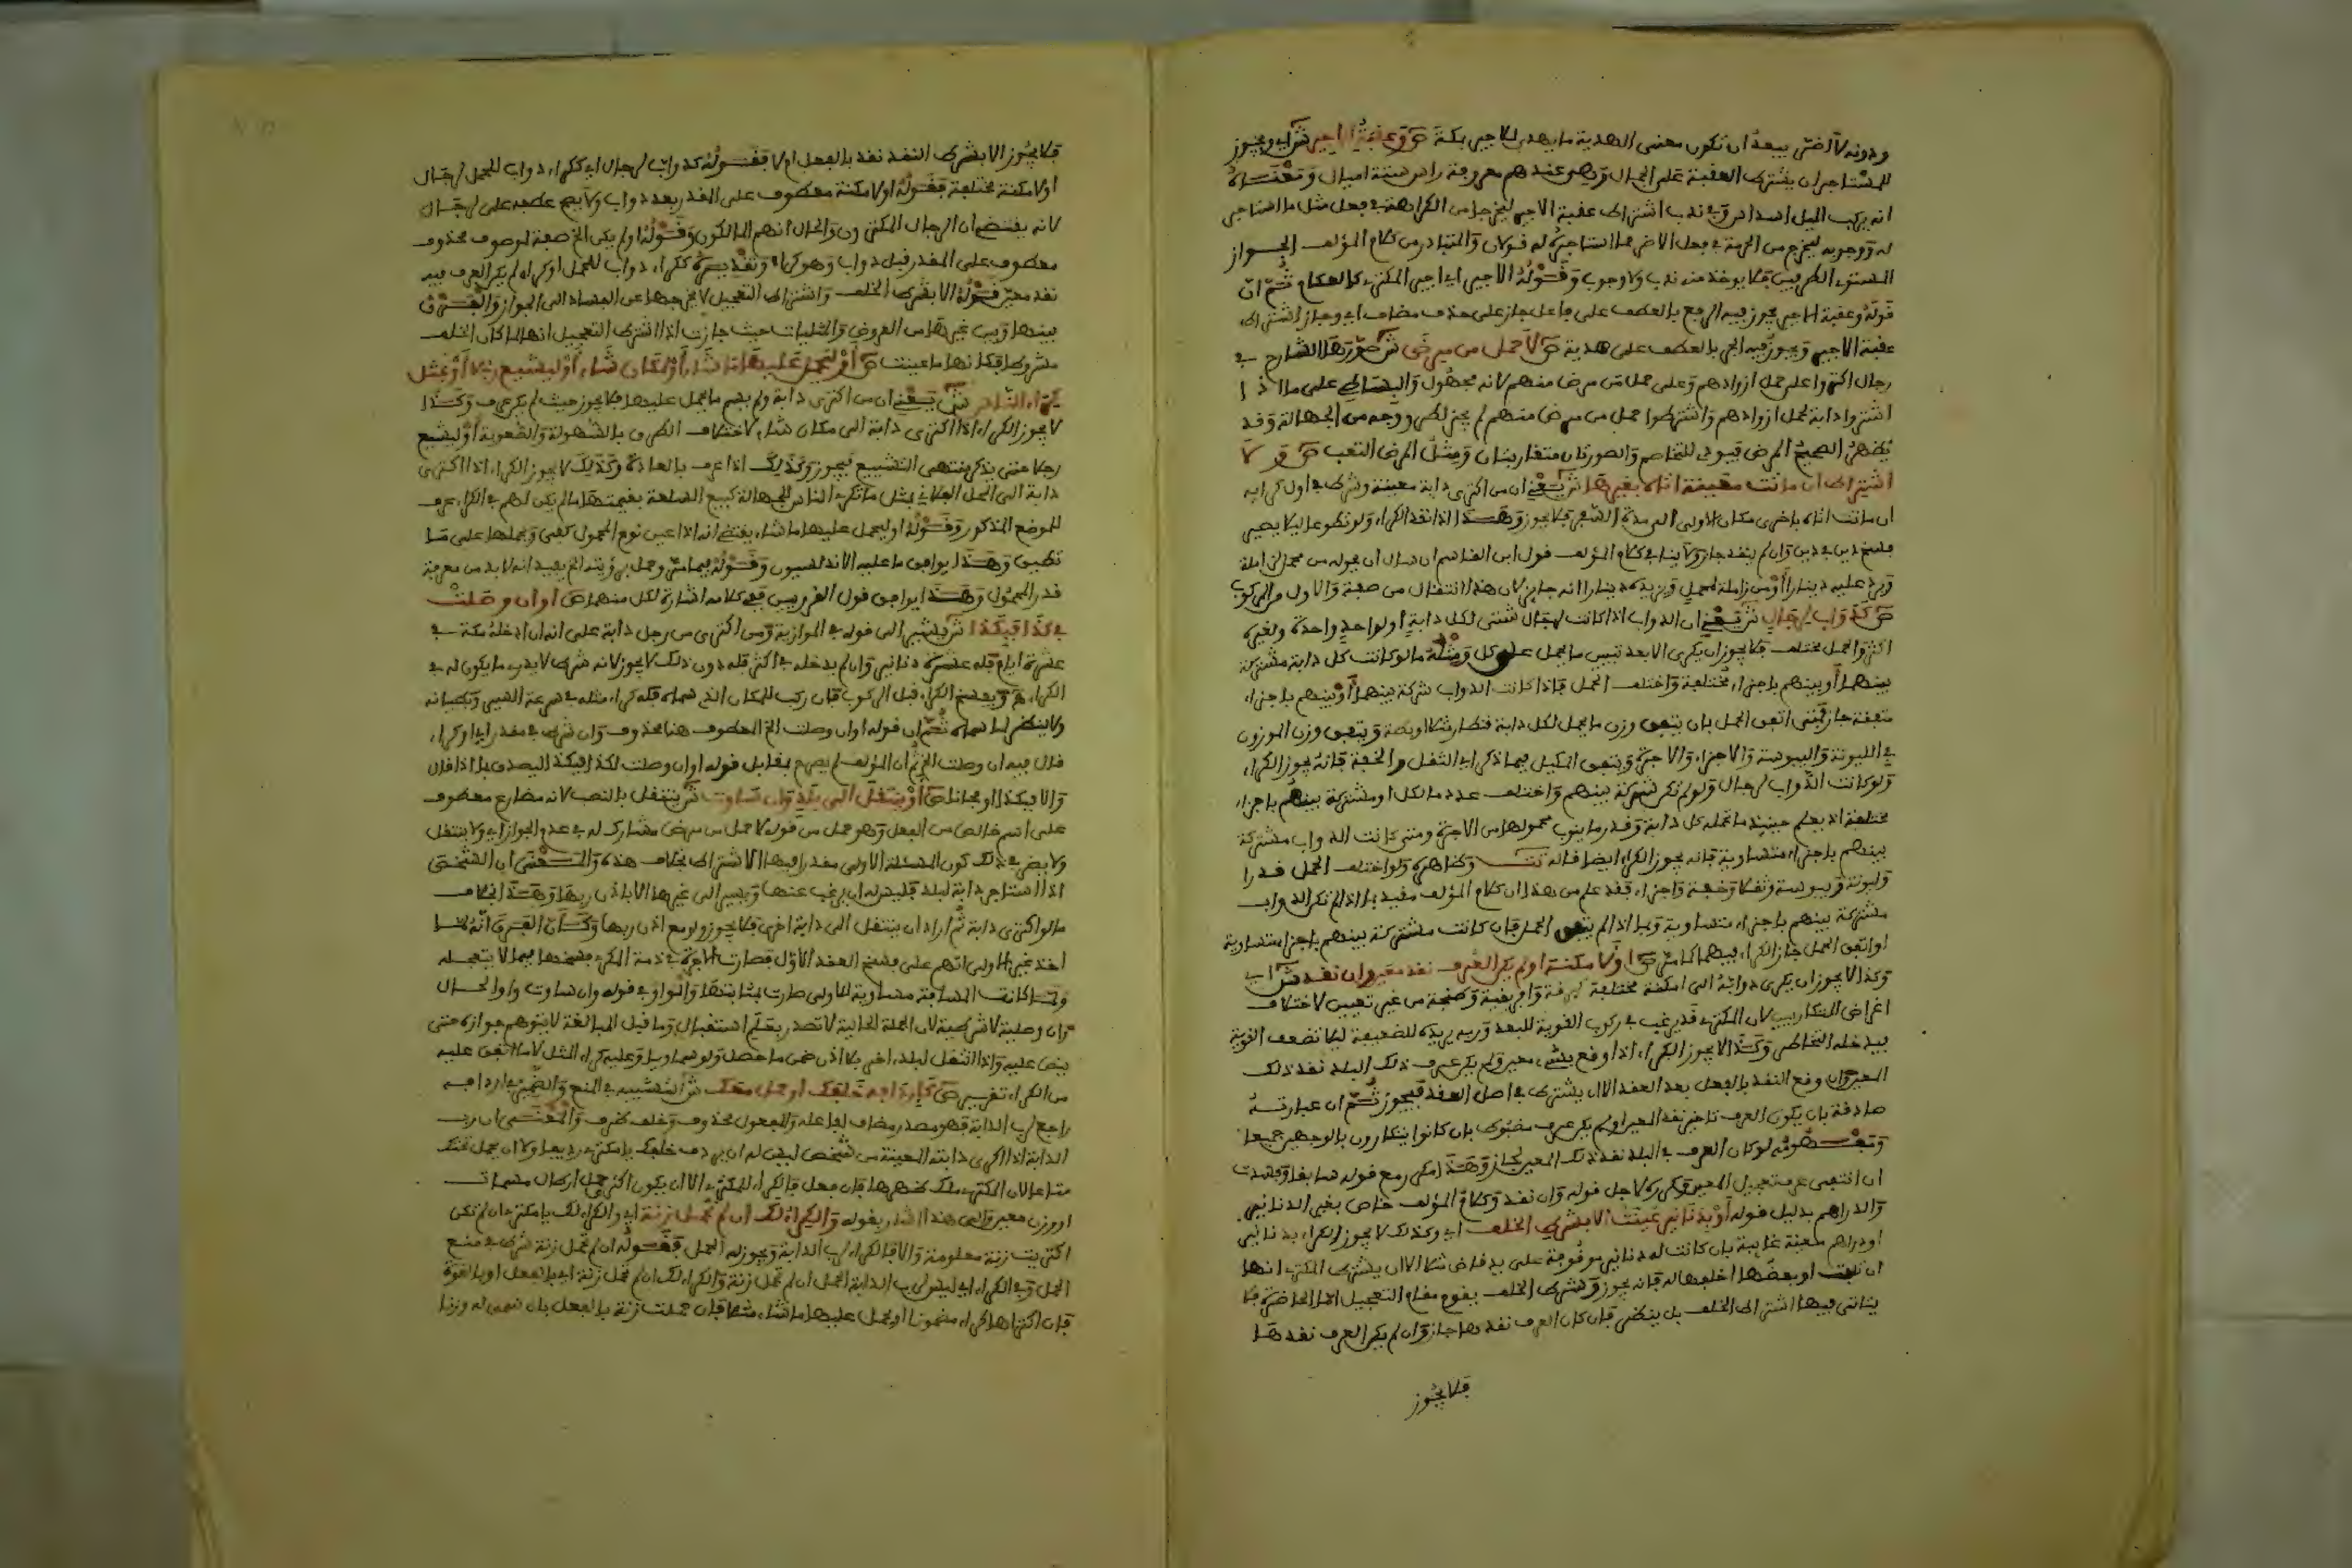 ودونه لا اختي يبعد ان تكون معنى الهدية ما يهدى للاجير بكة ص وعقبة الاجير ش اي ويجوز
للمستاجر ان يشترط العقبة على الجمال وهو عندهم معروفة راس ستة اميال ومعناه
انه يركب الميل السادس وفي ندب اشتراط عقبة الاجير ليخرج من الكراهة في فعل مثل ما استاجر
له ووجوبه ليخرج من الحرمة في فعل الاضر مما استاجره له قولان والمتبادر من كلام المؤلف الجواز
المستوي الطرفين فلا يوخذ منه ندب ولا وجوب وقوله الاجير اي اجير المكتري كالعكام ثم ان
قوله وعقبة الاجير يجوز فيه الرفع بالعطف على فاعل جاز على حذف مضاف اي وجاز اشتراط
عقبة الاجير ويجوز فيه الجر بالعطف على هدية ص لا حمل من مرض ش صورتها الشارح في
رجال اكتروا على حمل ازوادهم وعلى حمل من مرض منهم لانه مجهول والبساطي على ما اذا
اكتروا دابة لحمل ازوادهم واشترطوا حمل من مرض منهم لم يجز لظهور وجه من الجهالة وقد
يظهر الصحيح المرض فيودي للتخاصم والصورتان متقاربتان ومثل المرض التعب ص ولا
اشتراط ان ماتت معينة اتاه بغيرها ش يعني ان من اكترى دابة معينة وشرط في اول كرايه
ان ماتت اتاه باخرى مكان الاولى الى مدة السفر فلا يجوز وهذا اذا نقد الكراء ولو تطوعا ليلا يصير
فسخ دين في دين وان لم ينقد جاز ولا ينافي كلام المؤلف قول ابن القاسم ان سال ان يحوله من محمل الى زاملة
ويرد عليه دينارا او من زاملة لمحمل ويزيده دينارا انه جايز لان هذا انتقال من صفة والاول من الركوب
ص كدواب لرجال ش يعني ان الدواب اذا كانت لرجال شتى لكل دابة او لواحد واحدة ولغيره
اكثر والحمل مختلف فلا يجوز ان يكرى الا بعد تبيين ما يحمل على كل ومثله ما لو كانت كل دابة مشتركة
بينهما او بينهم باجزاء مختلفة واختلف الحمل فاذا كانت الدواب شركة بينهما او بينهم باجزاء
متفقة جاز فمتى اتفق الحمل بان يتفق وزن ما يحمل لكل دابة قنطار مثلا او بصة ويتفق وزن الموزون
في الليونة واليبوسة والاجزاء والاجرة ويتفق المكيل فيما ذكر اي الثقل والخفة فانه يجوز الكراء
ولو كانت الدواب لرجال ولو لم تكن شركة بينهم واختلف عدد ما لكل او مشتركة بينهم باجزاء
مختلفة اذ يعلم حينئذ ما تحمله كل دابة وقدر ما ينوب محمولها من الاجرة ومتى كانت الدواب مشتركة
بينهم باجزاء متساوية فانه يجوز الكراء ايضا قاله تت وظاهره ولو اختلف الحمل قدرا
وليونة ويبوسة وثقلا وخفة واجزاء فقد علم من هذا ان كلام المؤلف مقيد بما اذا لم تكن الدواب
مشتركة بينهم باجزاء متساوية وبما اذا لم يتفق الحمل فان كانت مشتركة بينهم باجزاء متساوية
او اتفق الحمل جاز الكراء فيهما كما مر ص او لامكنة او لم يكن العرف نقد معين وان نقد ش اي
وكذا لا يجوز ان يكرى دوابه الى امكنة مختلفة كبرقة وافريقية وطنجة من غير تعيين لاختلاف
اغراض المتكاريين لان المكتري قد يرغب في ركوب القوية للبعد وربه يريده للضعيفة ليلا تضعف القوية
فيدخله التخاطر وكذا لا يجوز الكراء اذا وقع بشيء معين ولم يكن عرف ذلك البلد نقد ذلك
المعين وان وقع النقد بالفعل بعد العقد الا ان يشترط في اصل العقد فيجوز ثم ان عبارته
صادقة بان يكون العرف تاخير نقد المعين او لم يكن عرف مضبوط بان كانوا يتكارون بالوجهين جميعا
ومفهومه لو كان العرف في البلد نقد ذلك المعين لجاز وهذا مكرر مع قوله سابقا وفسدت
ان انتفى عرف تعجيل المعين وكرره لاجل قوله وان نقد وكلام المؤلف خاص بغير الدنانير
والدراهم بدليل قوله او بدنانير عينت الا بشرط الخلف اي وكذلك لا يجوز الكراء بدنانير
او دراهم معينة غايبة بان كانت له دنانير موقوفة على يد قاض مثلا الا ان يشترط المكتري انها
ان تلفت او بعضها اخلفها له فانه يجوز وشرط الخلف يقوم مقام التعجيل اما الحاضرة فلا
يتاتى فيها اشتراط الخلف بل ينظر فان كان العرف نقدها جاز وان لم يكن العرف نقدها
فلا يجوز
فلا يجوز الا بشرط النقد نقد بالفعل ام لا فقوله كدواب لرجال اي ككراء دواب للحمل لرجال
او لامكنة مختلفة فقوله او لامكنة معطوف على المقدر بعد دواب ولا يصح عطفه على لرجال
لانه يقتضي ان الرجال المكترون والحال انهم المالكون وقوله او لم يكن الخ صفة لموصوف محذوف
معطوف على المقدر قبل دواب وهو كراء وتقديره ككراء دواب للحمل او كراء لم يكن العرف فيه
نقد معين قوله الا بشرط الخلف واشتراط التعجيل لا يخرجها عن الفساد الى الجواز والفرق
بينها وبين غيرها من العروض والمثليات حيث جازت اذا اشترط التعجيل انها لما كان الخلف
مشروطا فكانها ما عينت ص او ليحمل عليها ما شاء او لمكان شاء او ليشيع رجلا او بمثل
كراء الناس ش يعني ان من اكترى دابة ولم يسم ما يحمل عليها فلا يجوز حيث لم يكن عرف وكذا
لا يجوز الكراء اذا اكترى دابة الى مكان شاء لاختلاف الطرق بالسهولة والصعوبة او ليشيع
رجلا حتى يذكر منتهى التشييع فيجوز وكذلك اذا عرف بالعادة وكذلك لا يجوز الكراء اذا اكترى
دابة الى المحل الفلاني بمثل ما تكري الناس للجهالة كبيع السلعة بقيمتها ما لم يكن لهم في الكراء عرف
للموضع المذكور وقوله او ليحمل عليها ما شاء يقتضي انه اذا عين نوع المحمول كفى ويحملها على ما
تطيق وهذا يوافق ما عليه الاندلسيون وقوله فيما مر وحمل برؤيته الخ يفيد انه لا بد من معرفة
قدر المحمول وهذا يوافق قول القرويين ففي كلامه اشارة لكل منهما ص او ان وصلت
في كذا فبكذا ش يشير الى قوله في الموازية ومن اكترى من رجل دابة على انه ان ادخله مكة في
عشرة ايام فله عشرة دنانير وان لم يدخله في اكثر فله دون ذلك لا يجوز لانه شرط لا يدري ما يكون له في
الكراء ويفسخ الكراء قبل الركوب فان ركب للمكان الذي سماه فله كراء مثله في سرعة السير وبطيانه
ولا ينظر لما سماه ثم ان قوله او ان وصلت الخ المعطوف هنا محذوف وان شرط في مقدر اي او كراء
قال فيه ان وصلت الخ ثم ان المؤلف لم يصرح بمقابل قوله او ان وصلت لكذا فبكذا ليصدق بما اذا قال
والا فبكذا او مجانا ص او ينتقل الى بلد وان ساوت ش ينتقل بالنصب لانه مضارع معطوف
على اسم خالص من الفعل وهو حمل من قوله لا حمل من مرض مشارك له في عدم الجواز اي ولا ينتقل
ولا يضر في ذلك كون المسئلة الاولى مقدر فيها الاشتراط بخلاف هذه والمعنى ان الشخص
اذا استاجر دابة لبلد فليس له ان يرغب عنها ويسير الى غيرها الا باذن ربها وهذا بخلاف
ما لو اكترى دابة ثم اراد ان ينتقل الى دابة اخرى فلا يجوز ولو مع اذن ربها وكان الفرق انه لما
اخذ غير الاولى اتهم على فسخ العقد الاول فصارت الاجرة في ذمة المكري ففسخها فيما لا يتعجله
ولما كانت المسافة مساوية للاولى صارت بمثابتها والواو في قوله وان ساوت واو الحال
وان وصلية لا شرطية لان الجملة الحالية لا تصدر بعلم استقبال وما قبل المبالغة لا يتوهم جوازه حتى
ينص عليه واذا انتقل لبلد اخرى بلا اذن ضمن ما حصل ولو سماويا وعليه كراء المثل لا ما اتفق عليه
من الكراء تقريبا ص كاردافه خلفك او حمل معك ش التشبيه في المنع والضمير في اردافه
راجع لرب الدابة فهو مصدر مضاف لفاعله والمفعول محذوف وخلف ظرف والمعنى ان رب
الدابة اذا اكرى دابته المعينة من شخص ليس له ان يردف خلفك يا مكتري رديفا ولا ان يحمل تحتك
متاعا لان المكتري ملك ظهرها فان فعل فالكراء للمكتري الا ان يكون اكترى حمل ارطال مسماة
او وزن معين والى هذا اشار بقوله والكراء لك ان لم تحمل زنة اي والكراء لك يا مكتري ان لم تكن
اكتريت زنة معلومة والا فالكراء لرب الدابة ويجوز له الحمل فقوله ان لم تحمل زنة شرط في منع
الحمل وفي الكراء اي ليس لرب الدابة الحمل ان لم تحمل زنة والكراء لك ان لم تحمل زنة اي بالفعل او بالقوة
فان اكتراها كراء مضمونا او يحمل عليها ما شاء مثلا فان حملت زنة بالفعل بان سمى له وزنا